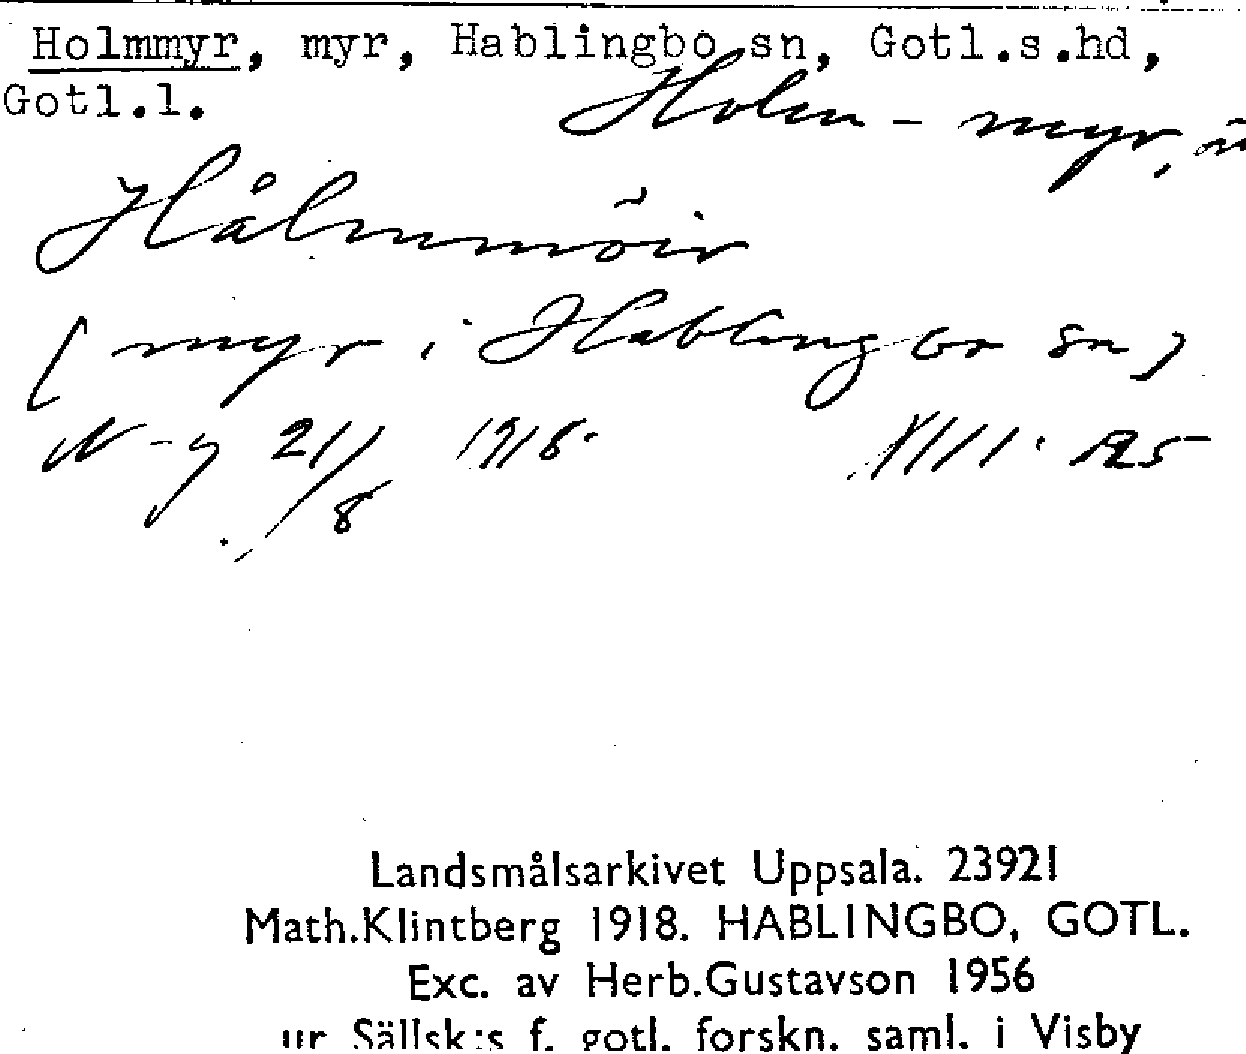 Holmmyr, myr, Hablingbo sn, Gotl.s.hd,
Gotl.l.
Holm-myr,
Hålmmöir
(myr i Hablingbo sn)
N-y 21/8 1918. XIII. 125
Landsmålsarkivet Uppsala. 23921
Math.Klintberg 1918. HABLINGBO, GOTL.
Exc. av Herb.Gustavson 1956
ur Sällsk:s f. gotl. forskn. saml. i Visby